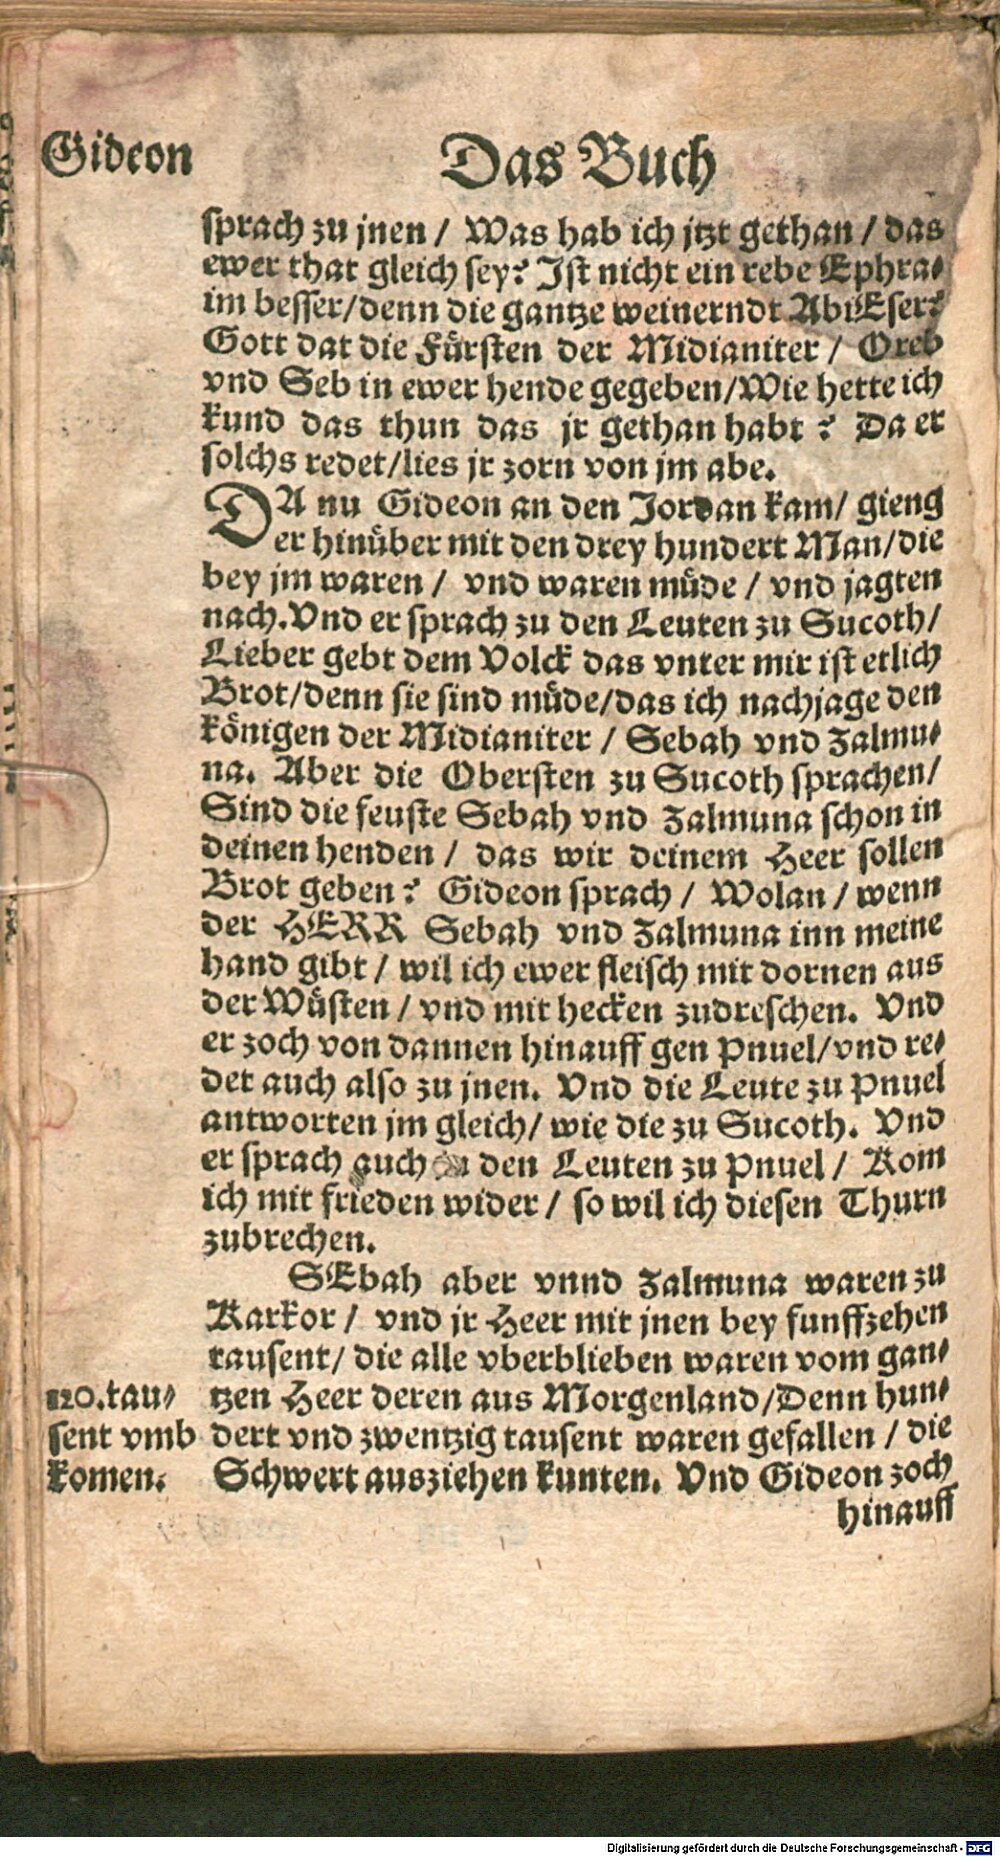 Gideon
Das Buch
sprach zu jnen / Was hab ich jtzt gethan / das
ewer that gleich sey? Ist nicht ein rebe Ephra⸗
im besser/denn die gantze weinerndt AbiEser?
Gott dat die Fürsten der Midianiter / Oreb
vnd Seb in ewer hende gegeben/Wie hette ich
kund das thun das jr gethan habt ? Da er
solchs redet/lies jr zorn von jm abe.
DA nu Gideon an den Jordan kam/ gieng
er hinüber mit den drey hundert Man/die
bey jm waren / vnd waren müde / vnd jagten
nach.Vnd er sprach zu den Leuten zu Sucoth/
Lieber gebt dem Volck das vnter mir ist etlich
Brot/denn sie sind müde/das ich nachjage den
königen der Midianiter / Sebah vnd Zalmu⸗
na. Aber die Obersten zu Sucoth sprachen/
Sind die feuste Sebah vnd Zalmuna schon in
deinen henden / das wir deinem Heer sollen
Brot geben? Gideon sprach / Wolan / wenn
der HERR Sebah vnd Zalmuna inn meine
hand gibt / wil ich ewer fleisch mit dornen aus
der Wüsten / vnd mit hecken zudreschen. Vnd
er zoch von dannen hinauff gen Pnuel/vnd re⸗
det auch also zu jnen. Vnd die Leute zu Pnuel
antworten jm gleich/ wie die zu Sucoth. Vnd
er sprach auch zu den Leuten zu Pnuel / Kom
ich mit frieden wider / so wil ich diesen Thurn
zubrechen.
SEbah aber vnnd Zalmuna waren zu
Karkor / vnd jr Heer mit jnen bey funffzehen
tausent/ die alle vberblieben waren vom gan⸗
tzen Heer deren aus Morgenland/Denn hun⸗
dert vnd zwentzig tausent waren gefallen / die
Schwert ausziehen kunten. Vnd Gideon zoch
hinauff
120.tau⸗
sent vmb
komen.
Digitalisierung gefördert durch die Deutsche Forschungsgemeinschaft - DFG